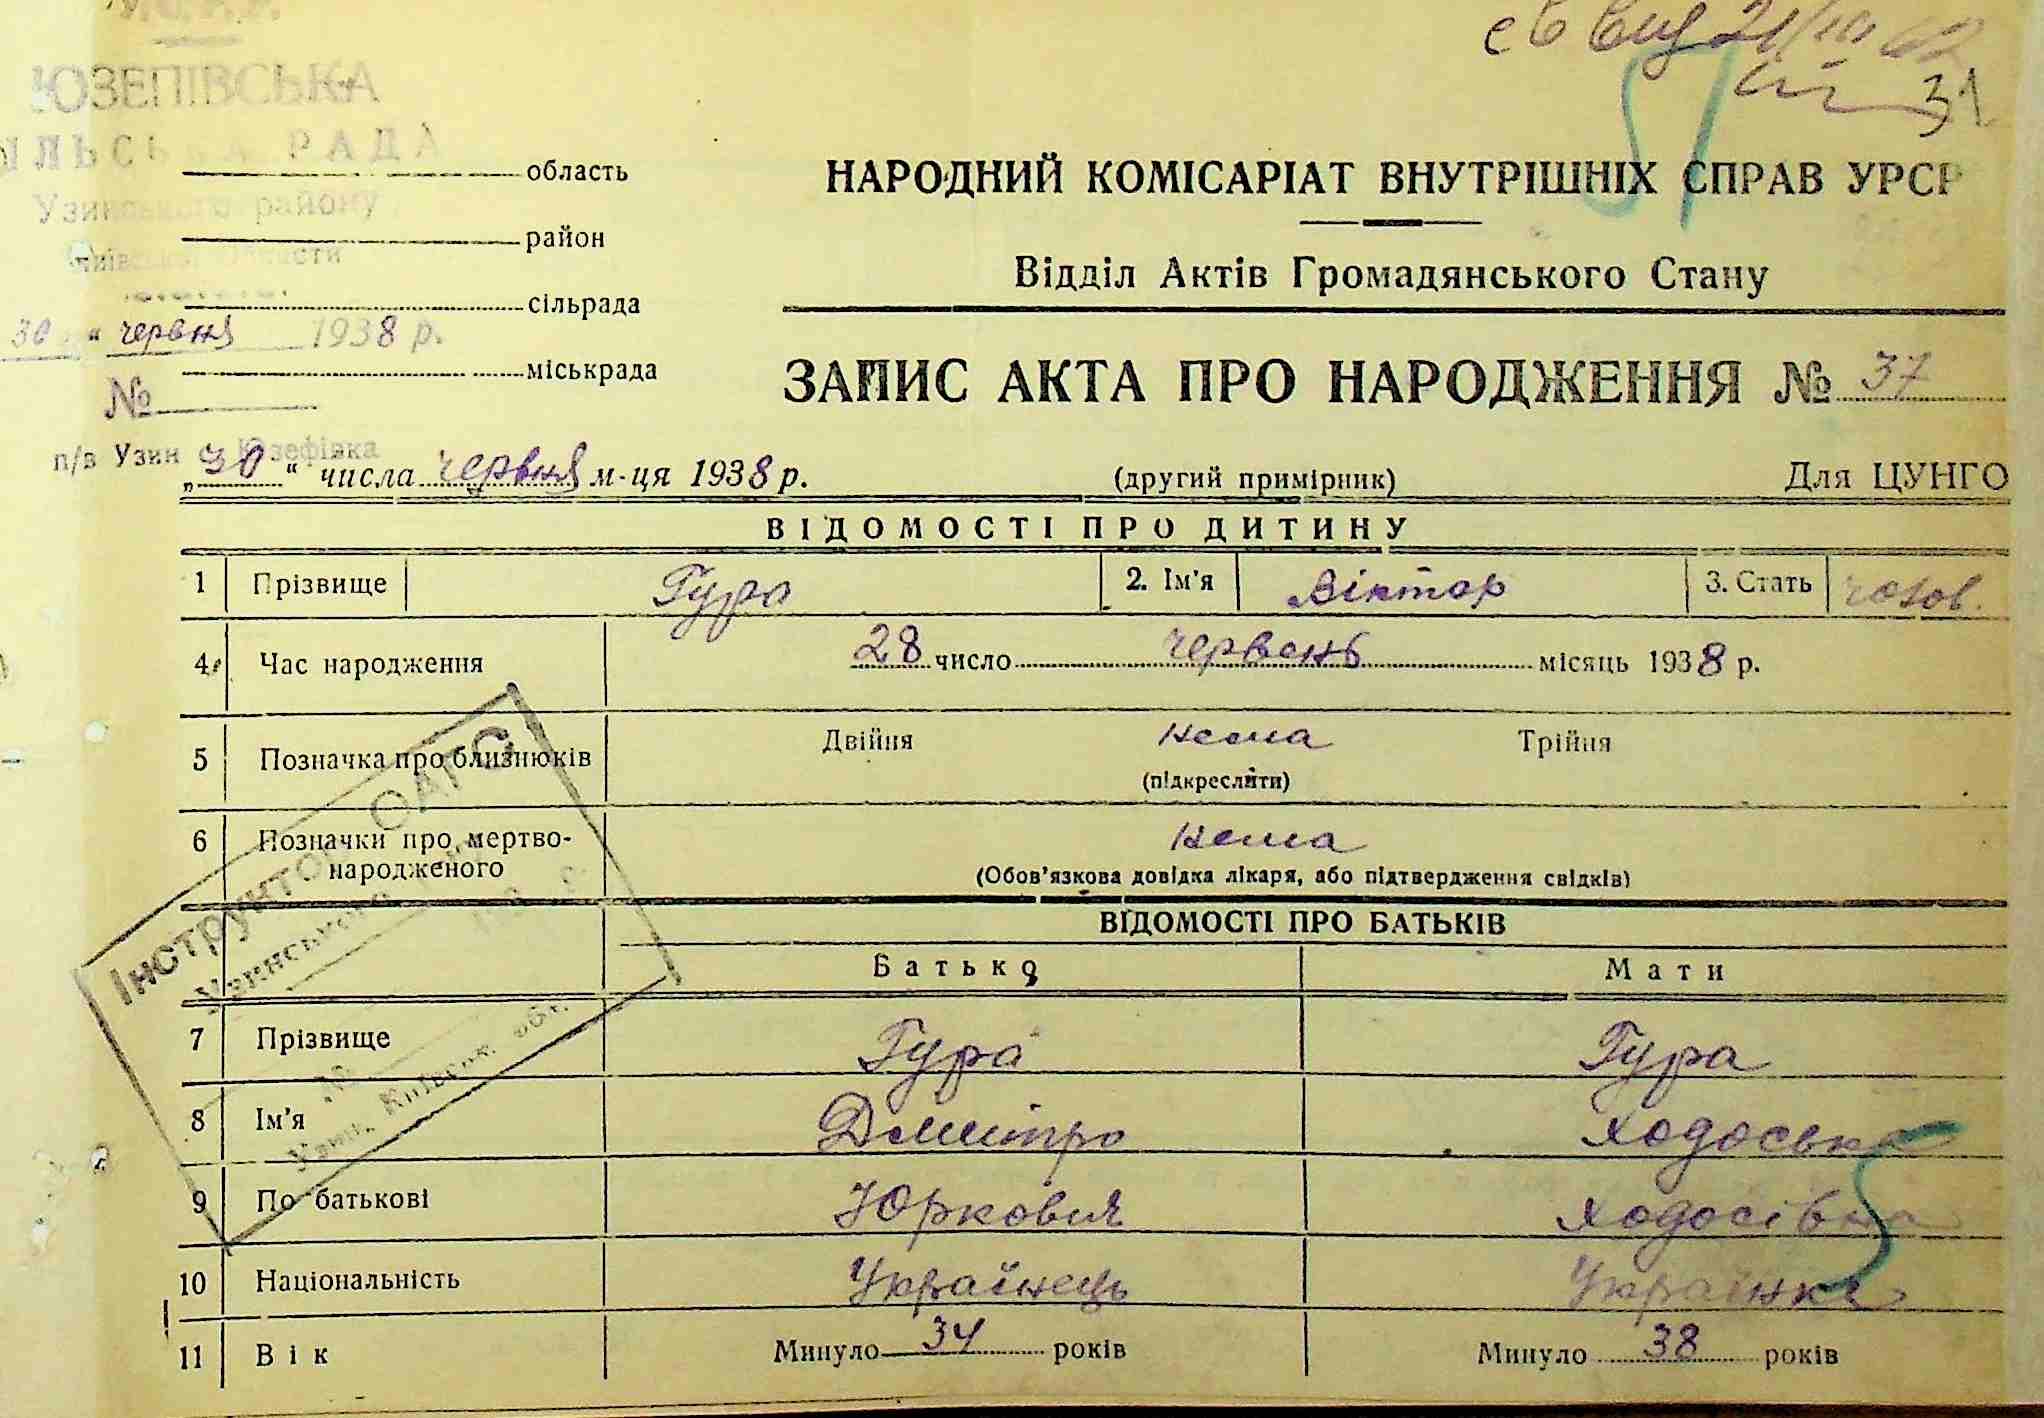 У.С.Р.Р.
ЮЗЕПІВСЬКА
СІЛЬСЬКА РАДА
Узинського району
Київської области
30 " червня 1938 р.
№
п/в Узин с. Юзефівка
область
район
сільрада
міськрада
21/
31
НАРОДНИЙ КОМІСАРІАТ ВНУТРІШНІХ СПРАВ УРСР
Відділ Актів Громадянського Стану
ЗАПИС АКТА ПРО НАРОДЖЕННЯ № 37
„30“ числа червня м-ця 1938 р. (другий примірник) Для ЦУНГО
ВІДОМОСТІ ПРО ДИТИНУ
1 Прізвище Гура 2. Ім'я Віктор 3. Стать чолов.
4 Час народження 28 число червень місяць 1938 р.
5 Позначка про близнюків Двійня нема Трійня
(підкреслити)
6 Позначки про мертво-
народженого нема
(Обов'язкова довідка лікаря, або підтвердження свідків)
ВІДОМОСТІ ПРО БАТЬКІВ
Батько Мати
7 Прізвище Гура Гура
8 Ім'я Дмитро Ходоська
9 По батькові Юркович Ходосівна
10 Національність Українець Українка
11 Вік Минуло 34 років Минуло 38 років
Інструктор ОАГС
Узинського
№
Узин, Київськ. обл.